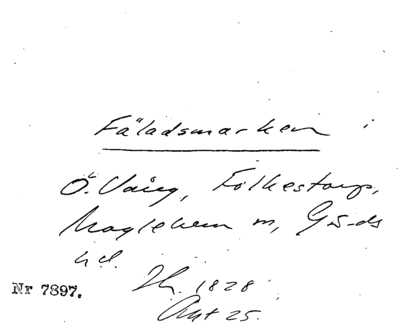 Fäladsmarken i
Ö. Vång, Folkestorp,
Maglehem m, Gä-ds
hd.
1828
Akt 25.
Nr 7897.